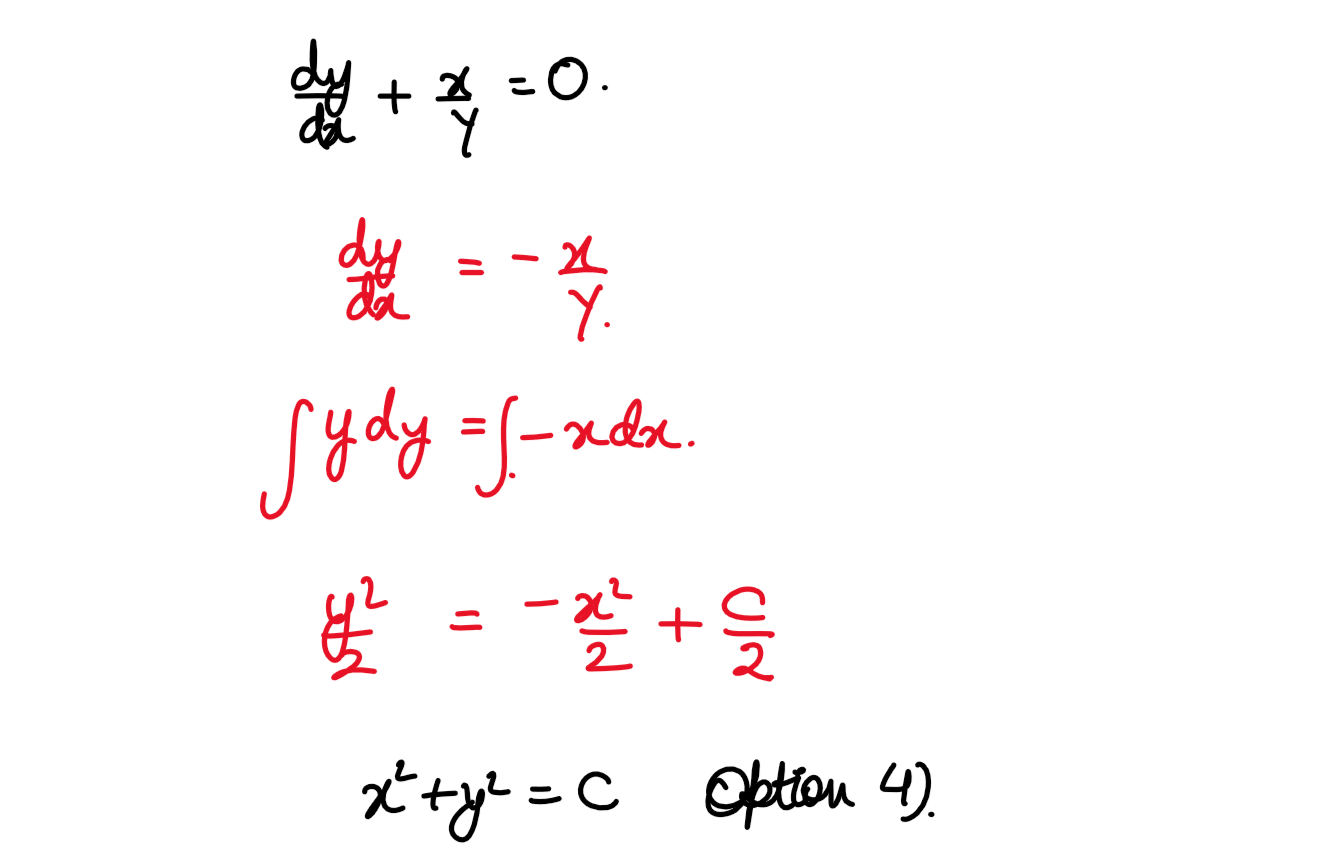 dy/dx + x/y = 0.
dy/dx = - x/y.
∫ y dy = ∫ - x dx.
y²/2 = - x²/2 + C/2
x² + y² = C Option 4).